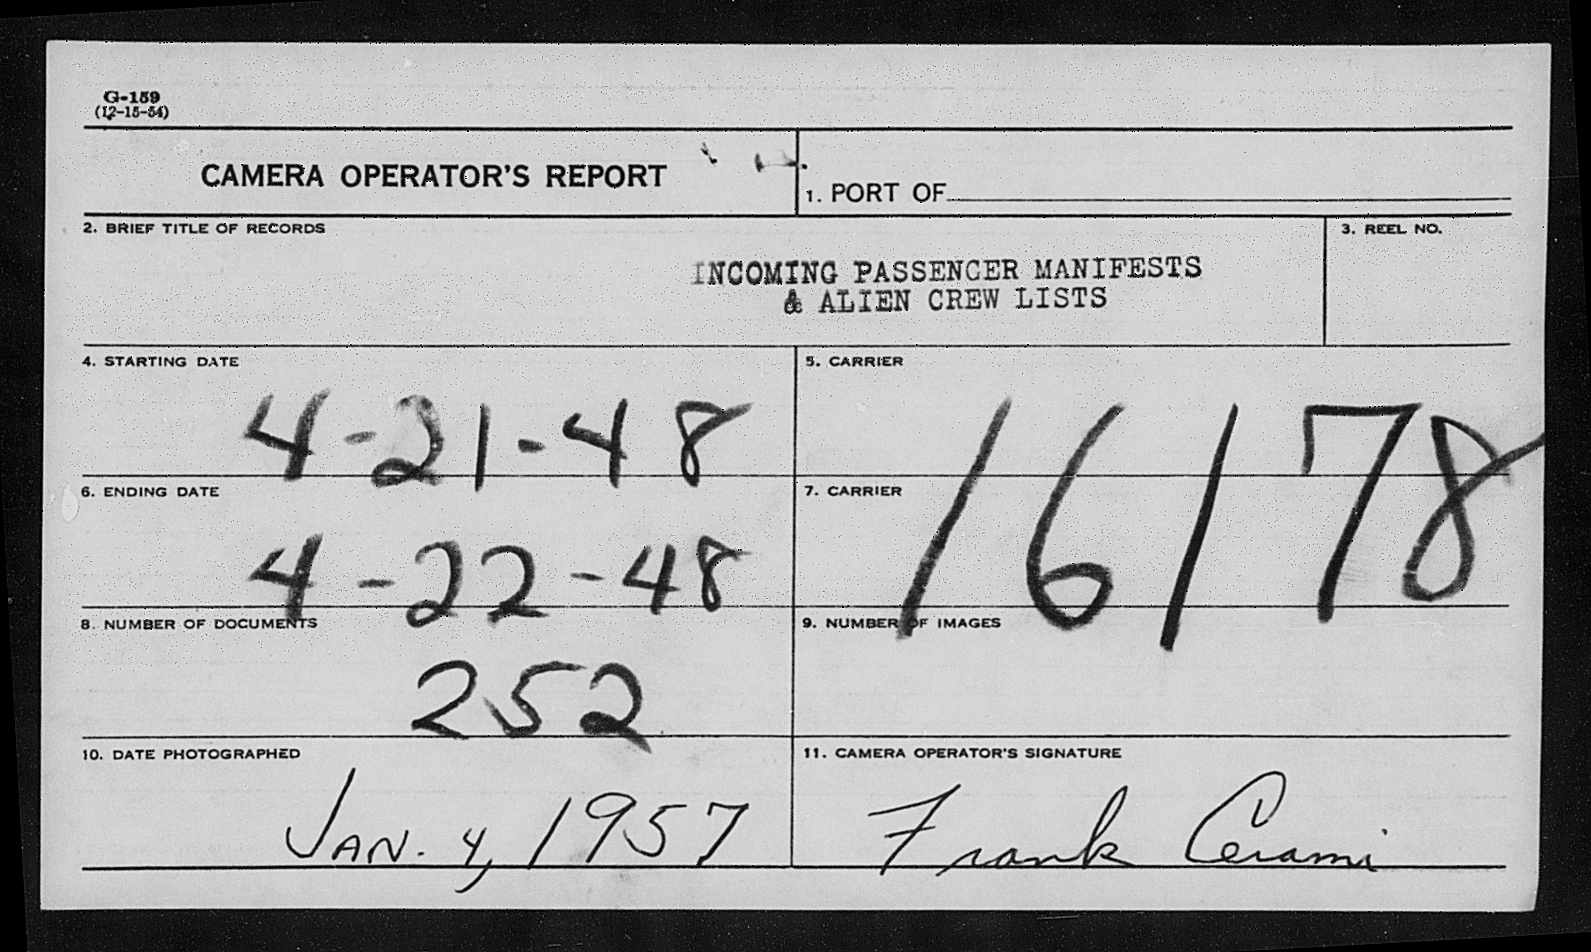 G-159
(12-15-54)
CAMERA OPERATOR'S REPORT
1. PORT OF
2. BRIEF TITLE OF RECORDS
3. REEL NO.
INCOMING PASSENGER MANIFESTS
& ALIEN CREW LISTS
4. STARTING DATE
4-21-48
5. CARRIER
16178
6. ENDING DATE
4-22-48
7. CARRIER
8. NUMBER OF DOCUMENTS
252
9. NUMBER OF IMAGES
10. DATE PHOTOGRAPHED
JAN. 4, 1957
11. CAMERA OPERATOR'S SIGNATURE
Frank Cerami